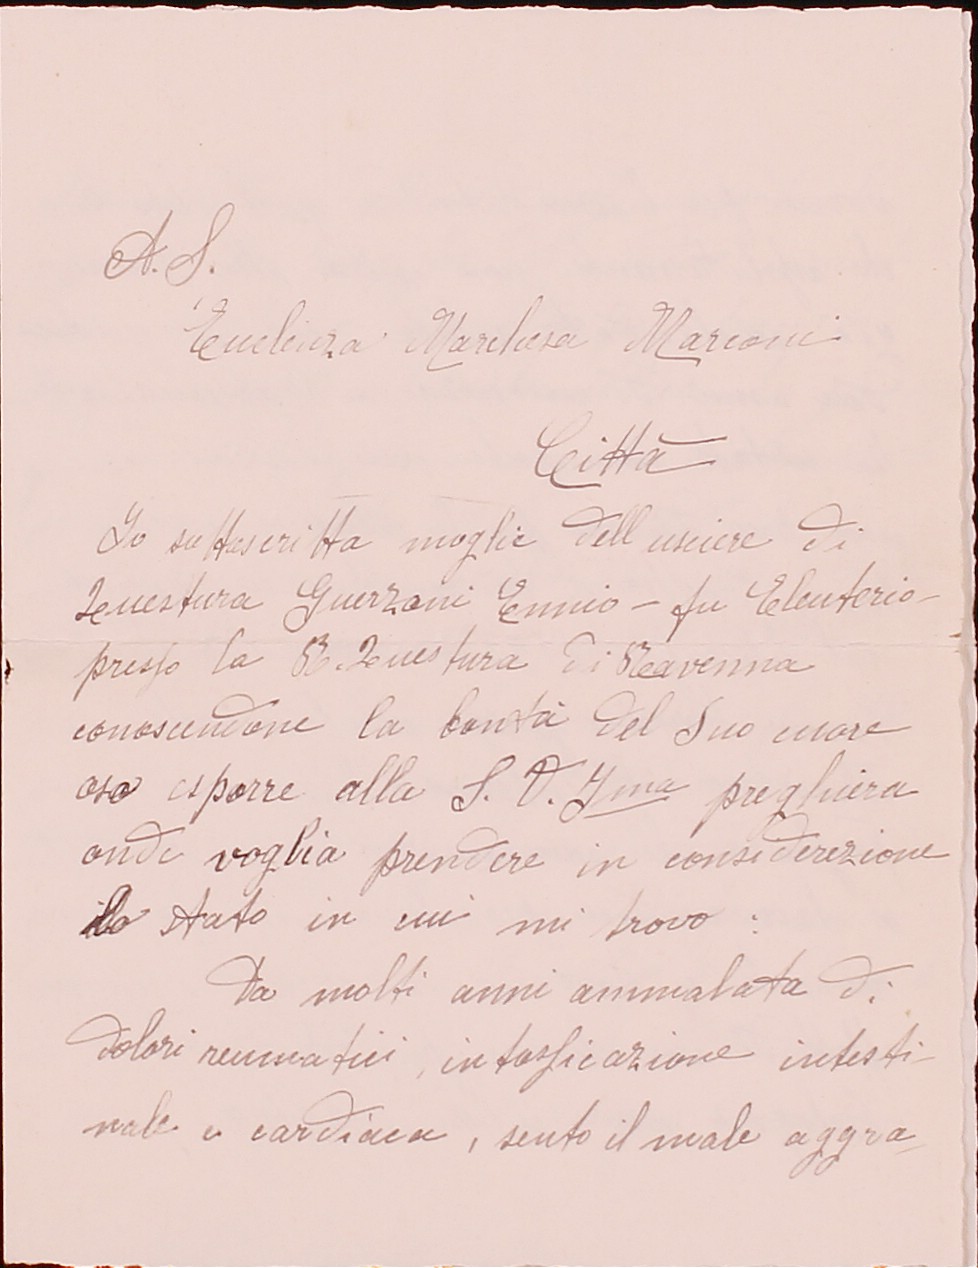 A. S.
Eccelenza Marchesa Marconi
Città
Io sottoscritta moglie dell usciere di
Questura Guerzoni Ennio - fu Eleuterio -
presso la R. Questura di Ravenna
conoscendone la bontà del Suo cuore
oso esporre alla S. V. Ima preghiera
onde voglia prendere in considerezione
lo stato in cui mi trovo :
Da molti anni ammalata di
dolori reumatici, intossicazione intesti-
nale e cardiaca, sento il male aggra-